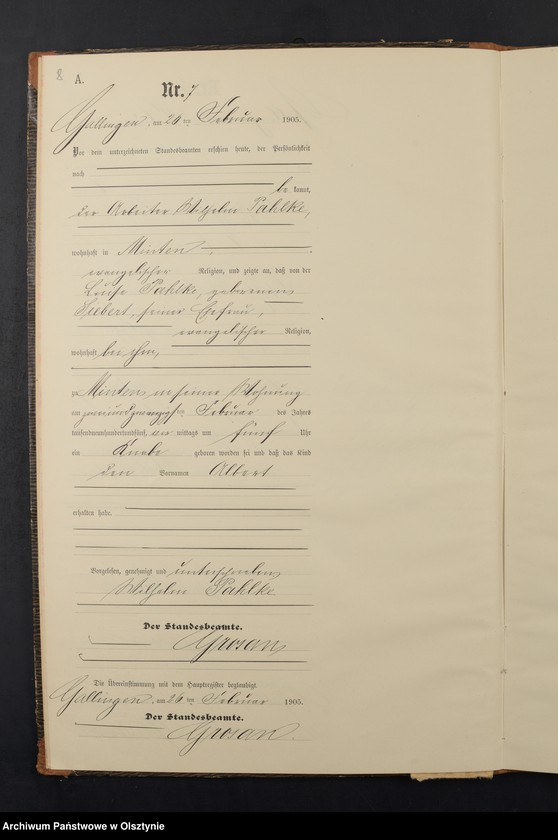 8
A.
Nr. 7
Gallingen, am 26 ten Februar 1905.
Vor dem unterzeichneten Standesbeamten erschien heute, der Persönlichkeit
nach
be kannt,
der Arbeiter Wilhelm Pahlke,
wohnhaft in Minten,
evangelischer Religion, und zeigte an, daß von der
Luise Pahlke, geborenen
Siebert, seiner Ehefrau,
evangelischer Religion,
wohnhaft bei ihm,
zu Minten in seiner Wohnung
am zweiundzwanzigsten Februar des Jahres
tausendneunhundertundfünf, mittags um fünf Uhr
ein Knabe geboren worden sei und daß das Kind
den Vornamen Albert
erhalten habe.
Vorgelesen, genehmigt und unterschrieben
Wilhelm Pahlke
Der Standesbeamte.
Grosan
Die Übereinstimmung mit dem Hauptregister beglaubigt.
Gallingen, am 26 ten Februar 1905.
Der Standesbeamte.
Grosan.
Archiwum Państwowe w Olsztynie